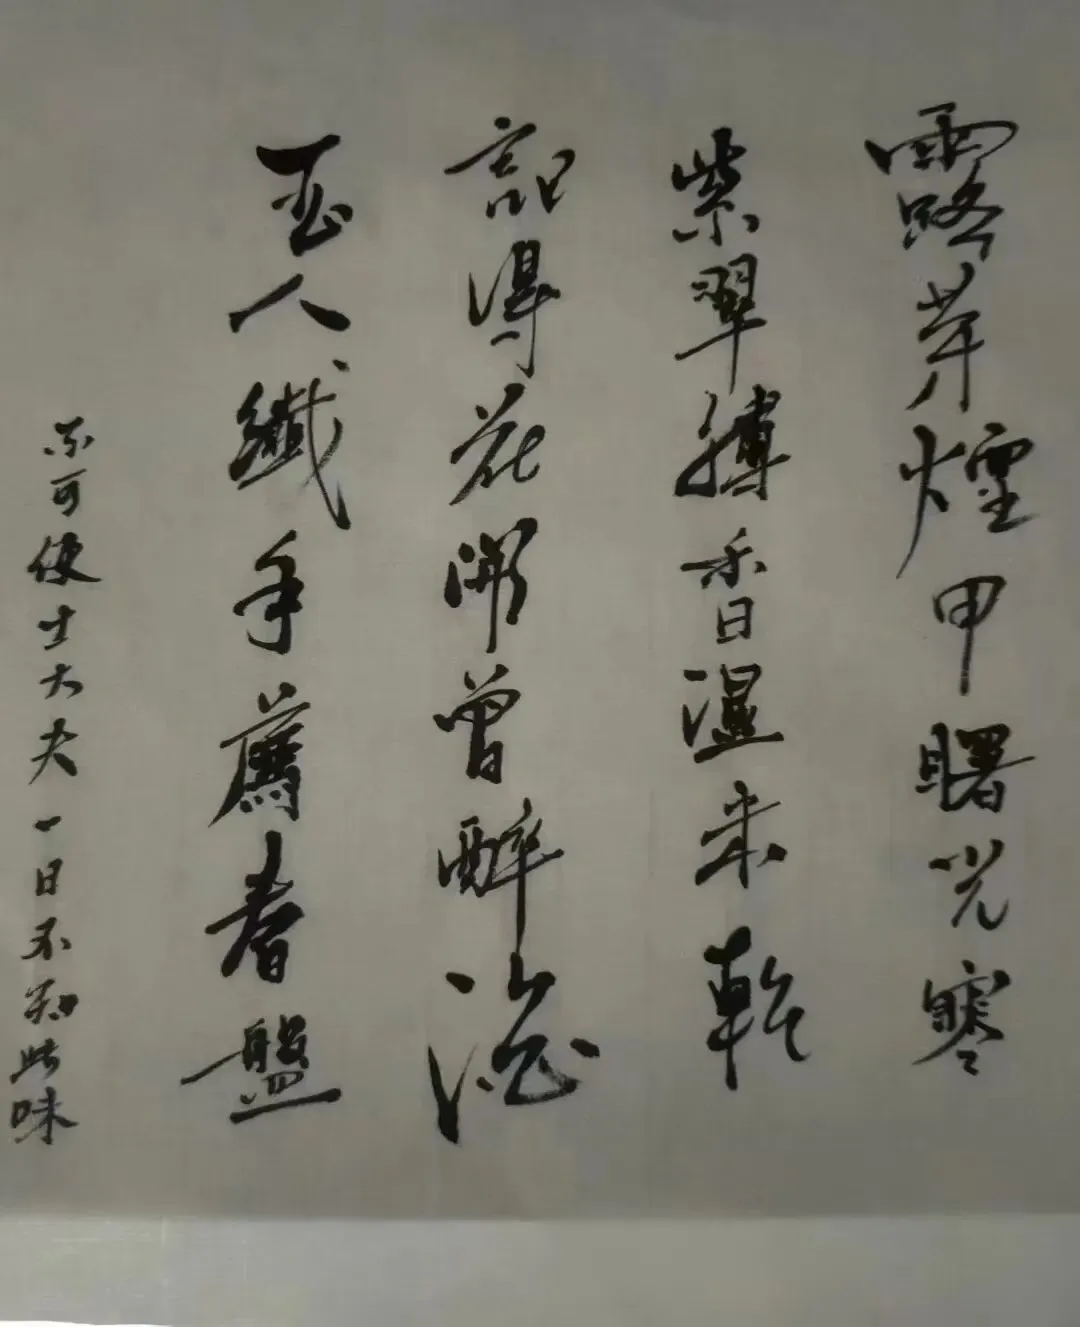 露芽煌甲曙光寒
紫翠香温未乾
記得花開曾醉
玉人纖手薦春盤
不可使士大夫一日不知此味